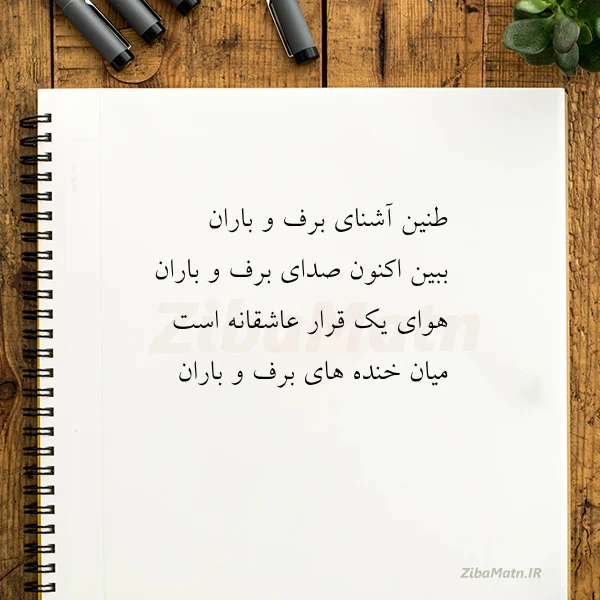 طنین آشنای برف و باران
ببین اکنون صدای برف و باران
هوای یک قرار عاشقانه است
میان خنده های برف و باران
ZibaMatn
ZibaMatn.IR